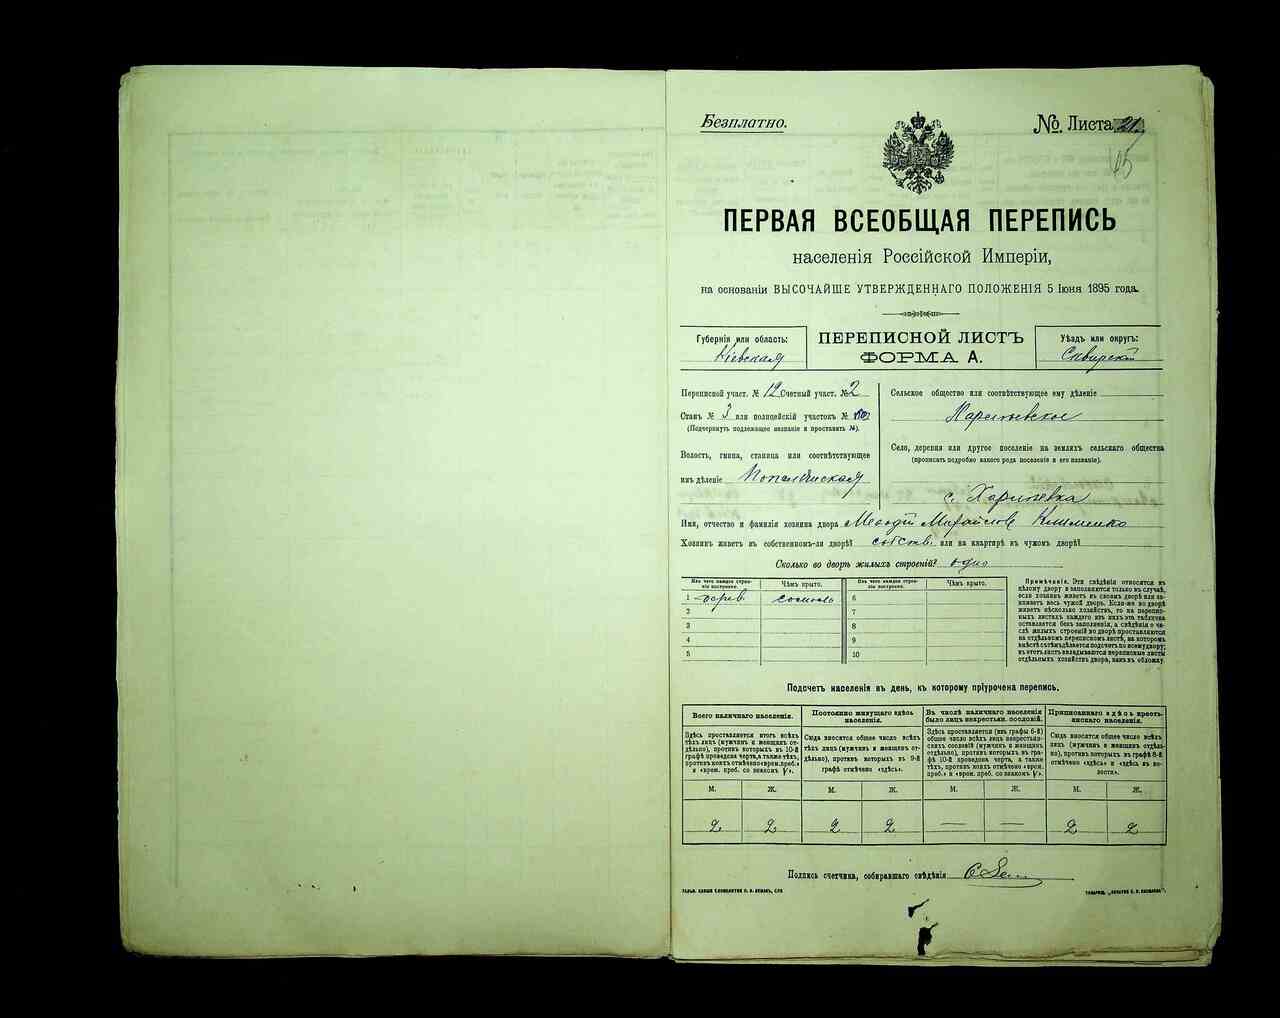 Безплатно.
№ Листа 21
45
ПЕРВАЯ ВСЕОБЩАЯ ПЕРЕПИСЬ
населенія Россійской Имперіи,
на основаніи ВЫСОЧАЙШЕ УТВЕРЖДЕННАГО ПОЛОЖЕНІЯ 5 Іюня 1895 года.
Губернія или область:
Кіевская
ПЕРЕПИСНОЙ ЛИСТЪ
ФОРМА А.
Уѣздъ или округъ:
Сквирскій
Переписной участ. № 12 Счетный участ. № 2
Станъ № 3 или полицейскій участокъ №
(Подчеркнуть подлежащее названіе и проставить №).
Волость, гмина, станица или соотвѣтствующее
имъ дѣленіе Попельнская
Сельское общество или соотвѣтствующее ему дѣленіе
Село, деревня или другое поселеніе на земляхъ сельскаго общества
(прописать подробно какого рода поселеніе и его названіе).
с.
Имя, отчество и фамилія хозяина двора Клименко
Хозяинъ живетъ въ собственномъ-ли дворѣ? собств. или на квартирѣ въ чужомъ дворѣ?
Сколько во дворѣ жилыхъ строеній? одно
Изъ чего каждое строеніе построено. Чѣмъ крыто. Изъ чего каждое строеніе построено. Чѣмъ крыто.
1 дерев. соломою 6
2 7
3 8
4 9
5 10
Примѣчаніе. Эти свѣдѣнія относятся къ
цѣлому двору и заполняются только въ случаѣ,
если хозяинъ живетъ въ своемъ дворѣ или занимаетъ
весь чужой дворъ. Если-же во дворѣ
живетъ нѣсколько хозяйствъ, то на переписныхъ
листахъ каждаго изъ нихъ эта табличка
оставляется безъ заполненія, а свѣдѣнія о числѣ
жилыхъ строеній во дворѣ проставляются
на отдѣльномъ переписномъ листѣ, на которомъ
вмѣстѣ съ тѣмъ дѣлается подсчетъ по всему двору;
въ этотъ листъ вкладываются переписные листы
отдѣльныхъ хозяйствъ двора, какъ въ обложку.
Подсчетъ населенія въ день, къ которому пріурочена перепись.
Всего наличнаго населенія.
Здѣсь проставляется итогъ всѣхъ
тѣхъ лицъ (мужчинъ и женщинъ отдѣльно),
противъ которыхъ въ 10-й
графѣ проведена черта, а также тѣхъ,
противъ коихъ отмѣчено «врем. преб.»
и «врем. преб. со знакомъ V».
Постоянно живущаго здѣсь
населенія.
Сюда вносится общее число всѣхъ
тѣхъ лицъ (мужчинъ и женщинъ отдѣльно),
противъ которыхъ въ 9-й
графѣ отмѣчено «здѣсь».
Въ числѣ наличнаго населенія
было лицъ некрестьян. сословій.
Здѣсь проставляется (изъ графы 6-й)
общее число всѣхъ лицъ некрестьянскихъ
сословій (мужчинъ и женщинъ
отдѣльно), противъ которыхъ въ графѣ
10-й проведена черта, а также
тѣхъ, противъ коихъ отмѣчено «врем.
преб.» и «врем. преб. со знакомъ V».
Приписаннаго здѣсь крестьянскаго
населенія.
Сюда вносится общее число всѣхъ
лицъ (мужчинъ и женщинъ отдѣльно),
противъ которыхъ въ графѣ 8-й
отмѣчено «здѣсь» и «здѣсь въ волости».
М. Ж. М. Ж. М. Ж. М. Ж.
2 2 2 2 — — 2 2
Подпись счетчика, собиравшаго свѣдѣнія